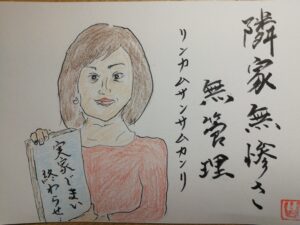 隣家無惨さ
無管理
リンカムザンサムカンリ
実家じまい
終わらせ